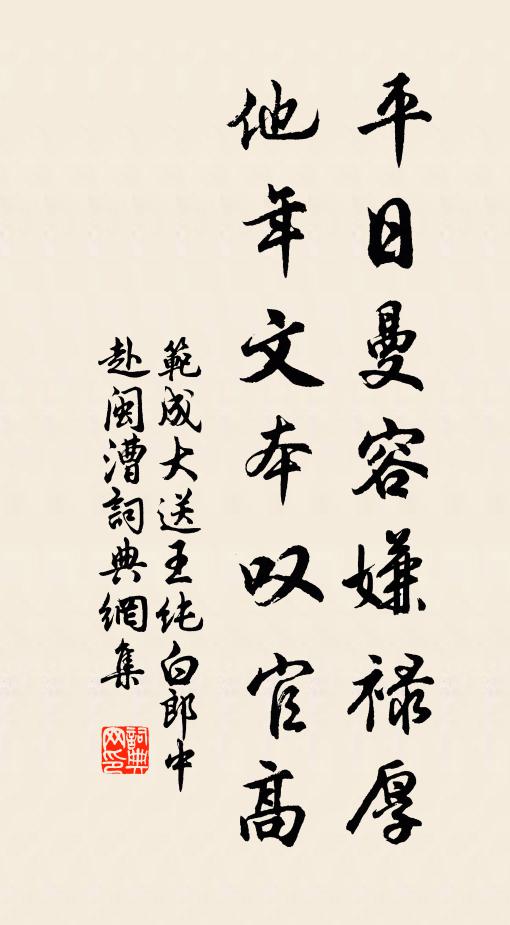 平日曼容嫌禄厚
他年文本叹官高
範成大送王纯白郎中
赴闽漕詞典網集
詞典网印